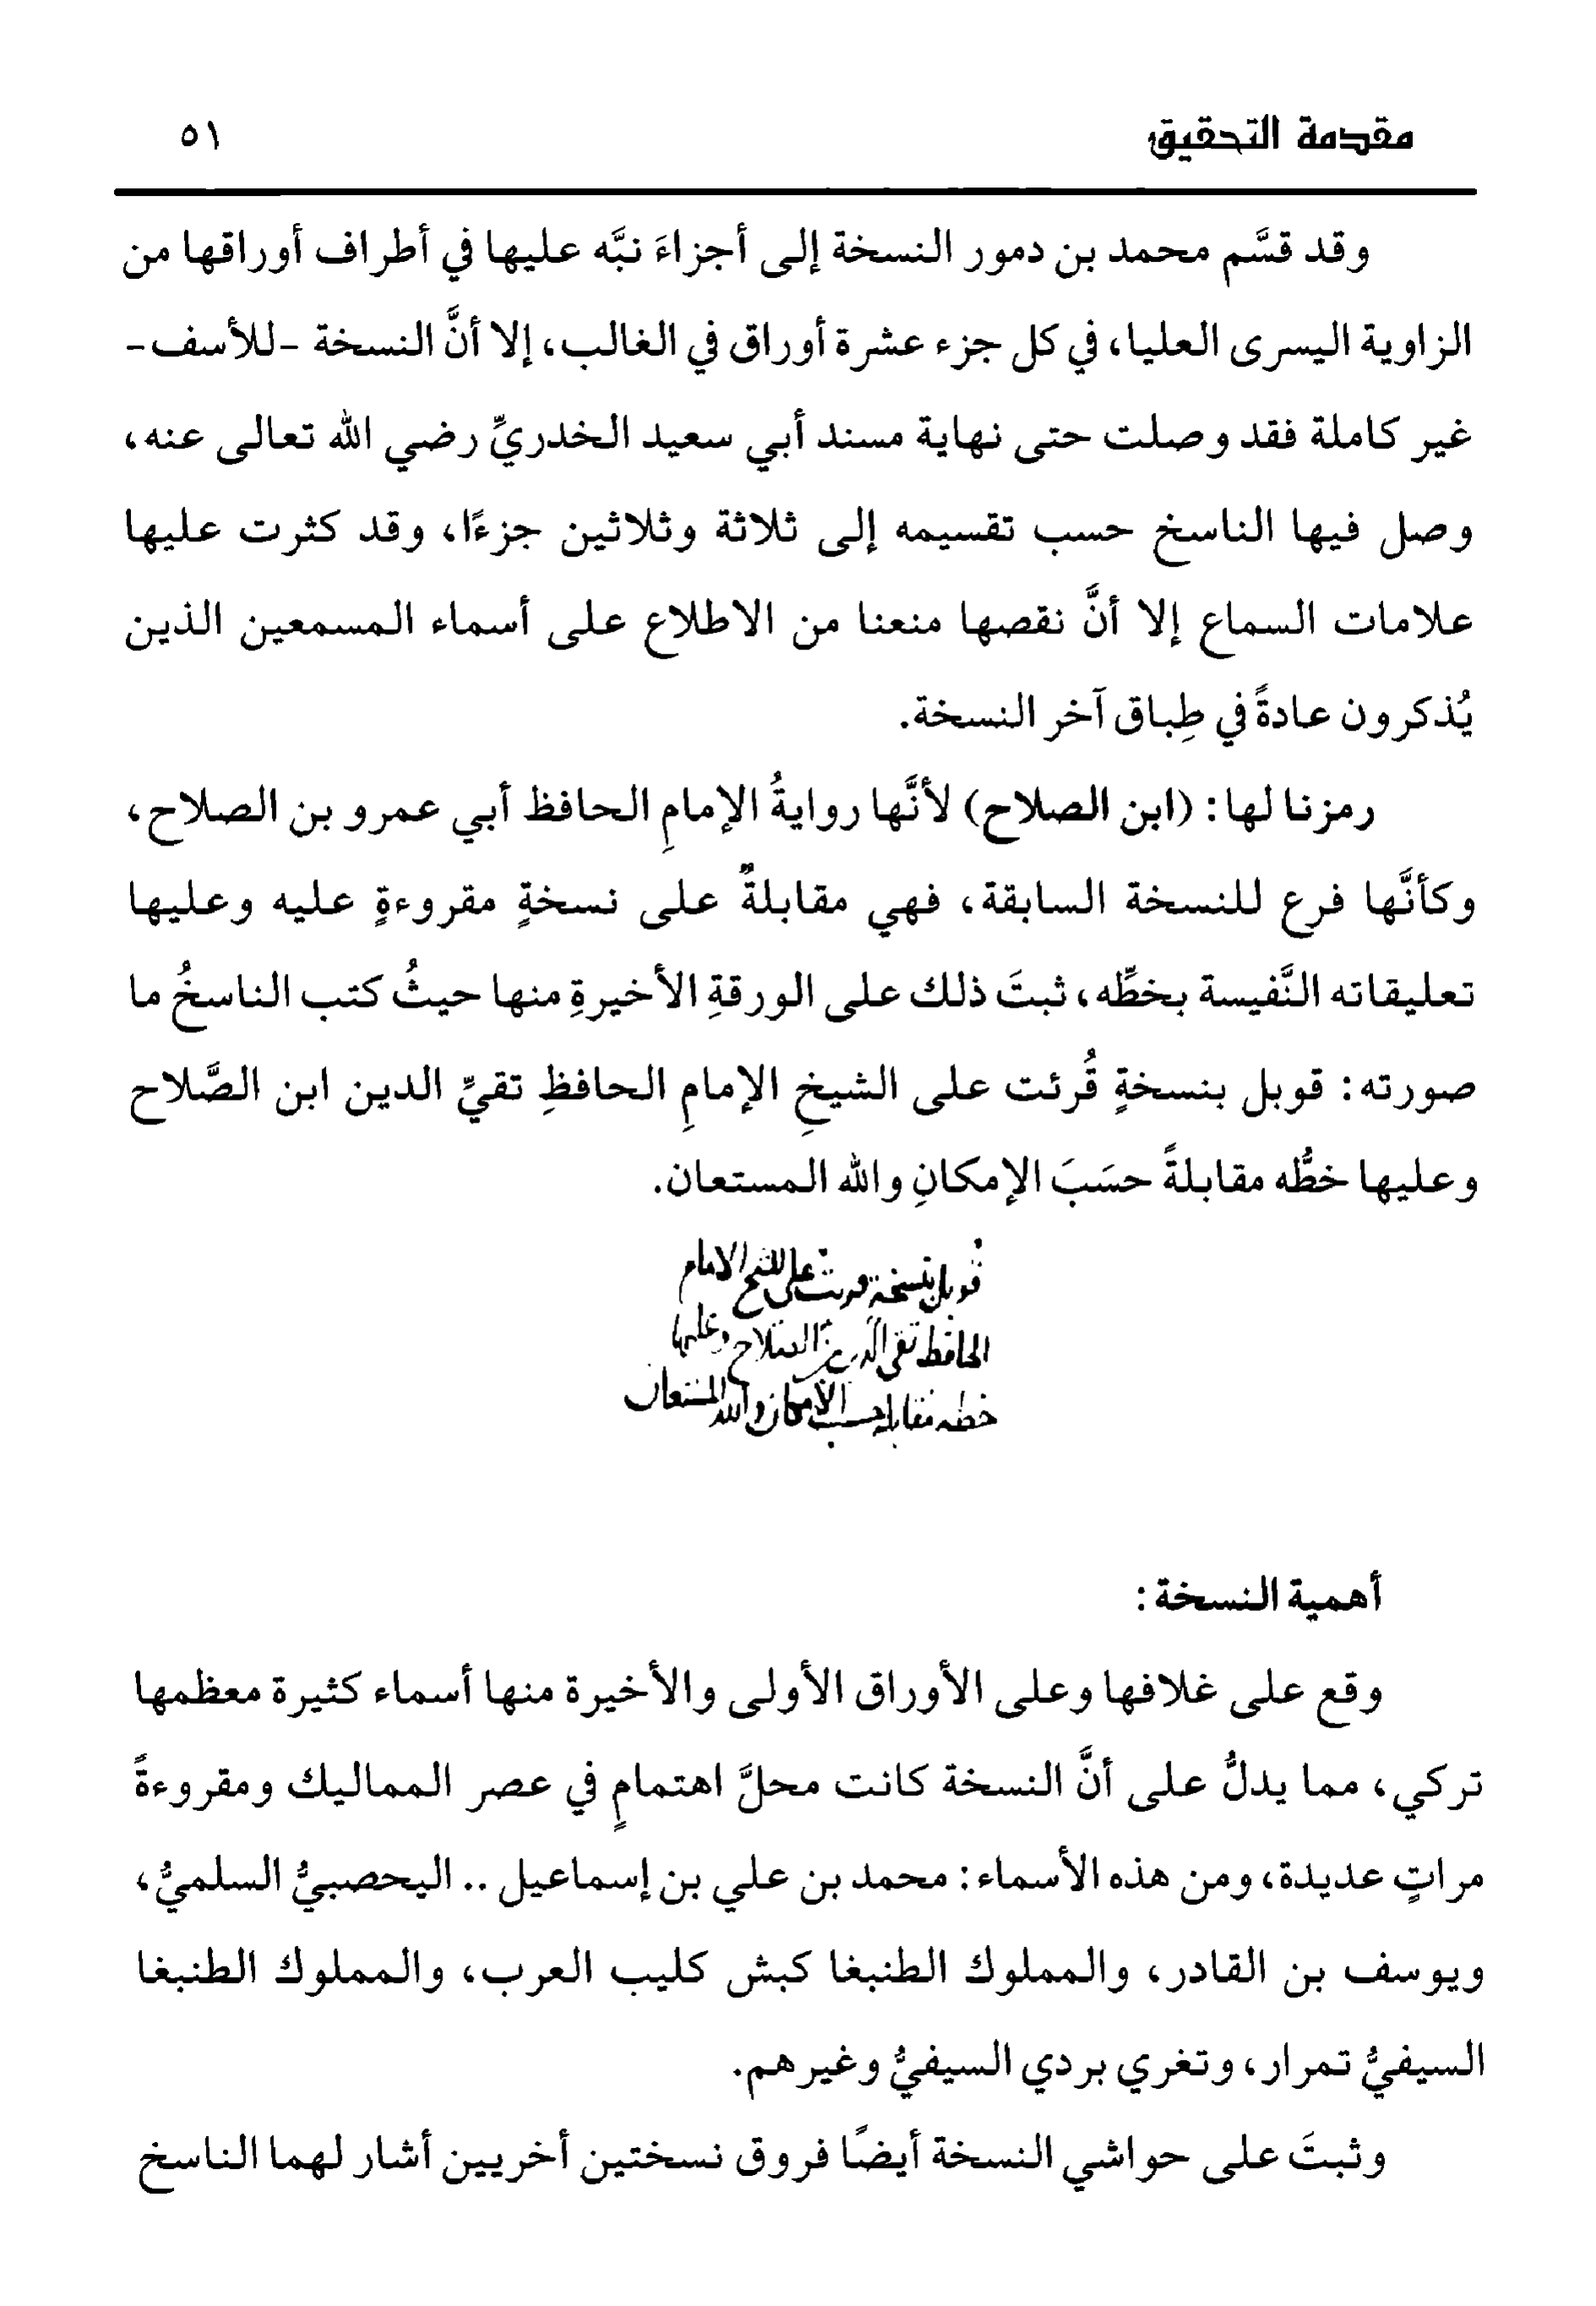 مقدمة التحقيق ٥١
وقد قسَّم محمد بن دمور النسخة إلى أجزاءَ نبَّه عليها في أطراف أوراقها من
الزاوية اليسرى العليا، في كل جزء عشرة أوراق في الغالب، إلا أنَّ النسخة -للأسف-
غير كاملة فقد وصلت حتى نهاية مسند أبي سعيد الخدريِّ رضي الله تعالى عنه،
وصل فيها الناسخ حسب تقسيمه إلى ثلاثة وثلاثين جزءًا، وقد كثرت عليها
علامات السماع إلا أنَّ نقصها منعنا من الاطلاع على أسماء المسمعين الذين
يُذكرون عادةً في طِباق آخر النسخة.
رمزنا لها: (ابن الصلاح) لأنَّها روايةُ الإمامِ الحافظ أبي عمرو بن الصلاح،
وكأنَّها فرع للنسخة السابقة، فهي مقابلةٌ على نسخةٍ مقروءةٍ عليه وعليها
تعليقاته النَّفيسة بخطِّه، ثبتَ ذلك على الورقةِ الأخيرةِ منها حيثُ كتب الناسخُ ما
صورته: قوبل بنسخةٍ قُرئت على الشيخِ الإمامِ الحافظِ تقيِّ الدين ابن الصَّلاح
وعليها خطُّه مقابلةً حسَبَ الإمكانِ والله المستعان.
قوبل بنسخة قرئت على الشيخ الامام
الحافظ تقي الدين بن الصلاح وعليها
خطه مقابلة حسب الامكان والله المستعان
أهمية النسخة:
وقع على غلافها وعلى الأوراق الأولى والأخيرة منها أسماء كثيرة معظمها
تركي، مما يدلُّ على أنَّ النسخة كانت محلَّ اهتمامٍ في عصر المماليك ومقروءةً
مراتٍ عديدة، ومن هذه الأسماء: محمد بن علي بن إسماعيل .. اليحصبيُّ السلميُّ،
ويوسف بن القادر، والمملوك الطنبغا كبش كليب العرب، والمملوك الطنبغا
السيفيُّ تمرار، وتغري بردي السيفيُّ وغيرهم.
وثبتَ على حواشي النسخة أيضًا فروق نسختين أخريين أشار لهما الناسخ